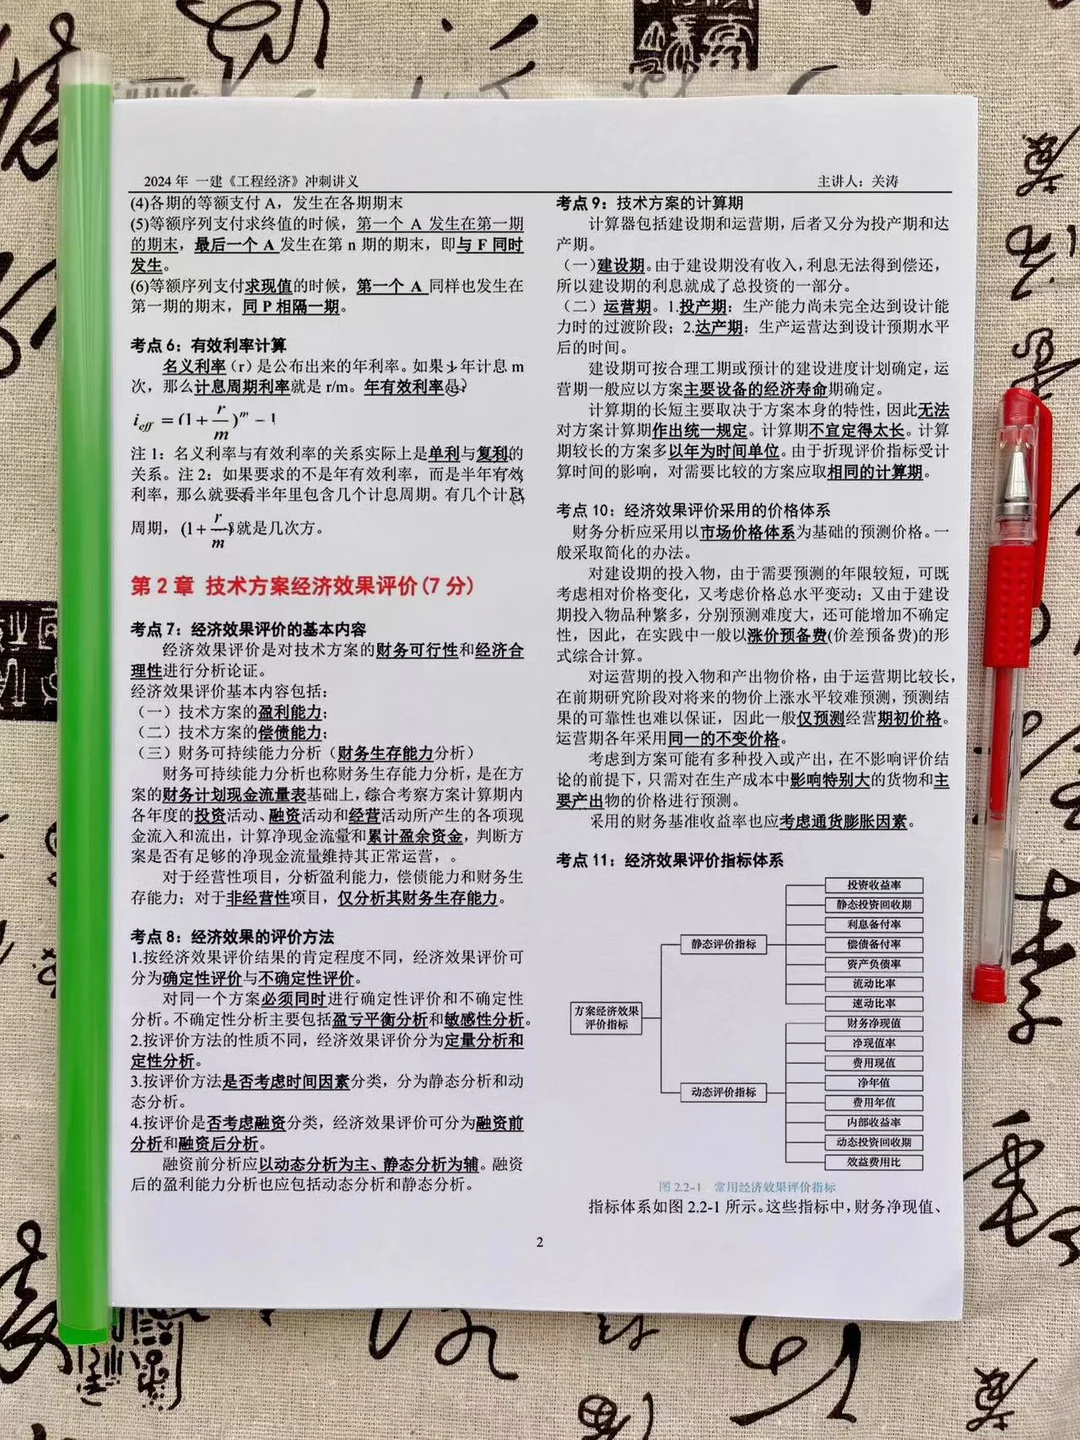 2024 年 一建《工程经济》冲刺讲义
主讲人：关涛
(4)各期的等额支付 A，发生在各期期末
(5)等额序列支付求终值的时候，第一个 A 发生在第一期
的期末，最后一个 A 发生在第 n 期的期末，即与 F 同时
发生。
(6)等额序列支付求现值的时候，第一个 A 同样也发生在
第一期的期末，同 P 相隔一期。
考点 6：有效利率计算
名义利率（r）是公布出来的年利率。如果 年计息 m
次，那么计息周期利率就是 r/m。年有效利率是
i eff = (1 + r/m)^m − 1
注 1：名义利率与有效利率的关系实际上是单利与复利的
关系。注 2：如果要求的不是年有效利率，而是半年有效
利率，那么就要看半年里包含几个计息周期。有几个计息
周期，(1 + r/m)就是几次方。
第 2 章 技术方案经济效果评价(7 分)
考点 7：经济效果评价的基本内容
经济效果评价是对技术方案的财务可行性和经济合
理性进行分析论证。
经济效果评价基本内容包括：
（一）技术方案的盈利能力；
（二）技术方案的偿债能力；
（三）财务可持续能力分析（财务生存能力分析）
财务可持续能力分析也称财务生存能力分析，是在方
案的财务计划现金流量表基础上，综合考察方案计算期内
各年度的投资活动、融资活动和经营活动所产生的各项现
金流入和流出，计算净现金流量和累计盈余资金，判断方
案是否有足够的净现金流量维持其正常运营，。
对于经营性项目，分析盈利能力，偿债能力和财务生
存能力；对于非经营性项目，仅分析其财务生存能力。
考点 8：经济效果的评价方法
1.按经济效果评价结果的肯定程度不同，经济效果评价可
分为确定性评价与不确定性评价。
对同一个方案必须同时进行确定性评价和不确定性
分析。不确定性分析主要包括盈亏平衡分析和敏感性分析。
2.按评价方法的性质不同，经济效果评价分为定量分析和
定性分析。
3.按评价方法是否考虑时间因素分类，分为静态分析和动
态分析。
4.按评价是否考虑融资分类，经济效果评价可分为融资前
分析和融资后分析。
融资前分析应以动态分析为主、静态分析为辅。融资
后的盈利能力分析也应包括动态分析和静态分析。
考点 9：技术方案的计算期
计算器包括建设期和运营期，后者又分为投产期和达
产期。
（一）建设期。由于建设期没有收入，利息无法得到偿还，
所以建设期的利息就成了总投资的一部分。
（二）运营期。1.投产期：生产能力尚未完全达到设计能
力时的过渡阶段；2.达产期：生产运营达到设计预期水平
后的时间。
建设期可按合理工期或预计的建设进度计划确定，运
营期一般应以方案主要设备的经济寿命期确定。
计算期的长短主要取决于方案本身的特性，因此无法
对方案计算期作出统一规定。计算期不宜定得太长。计算
期较长的方案多以年为时间单位。由于折现评价指标受计
算时间的影响，对需要比较的方案应取相同的计算期。
考点 10：经济效果评价采用的价格体系
财务分析应采用以市场价格体系为基础的预测价格。一
般采取简化的办法。
对建设期的投入物，由于需要预测的年限较短，可既
考虑相对价格变化，又考虑价格总水平变动；又由于建设
期投入物品种繁多，分别预测难度大，还可能增加不确定
性，因此，在实践中一般以涨价预备费(价差预备费)的形
式综合计算。
对运营期的投入物和产出物价格，由于运营期比较长，
在前期研究阶段对将来的物价上涨水平较难预测，预测结
果的可靠性也难以保证，因此一般仅预测经营期初价格。
运营期各年采用同一的不变价格。
考虑到方案可能有多种投入或产出，在不影响评价结
论的前提下，只需对在生产成本中影响特别大的货物和主
要产出物的价格进行预测。
采用的财务基准收益率也应考虑通货膨胀因素。
考点 11：经济效果评价指标体系
方案经济效果
评价指标
静态评价指标
投资收益率
静态投资回收期
利息备付率
偿债备付率
资产负债率
流动比率
速动比率
动态评价指标
财务净现值
净现值率
费用现值
净年值
费用年值
内部收益率
动态投资回收期
效益费用比
图 2.2-1 常用经济效果评价指标
指标体系如图 2.2-1 所示。这些指标中，财务净现值、
2